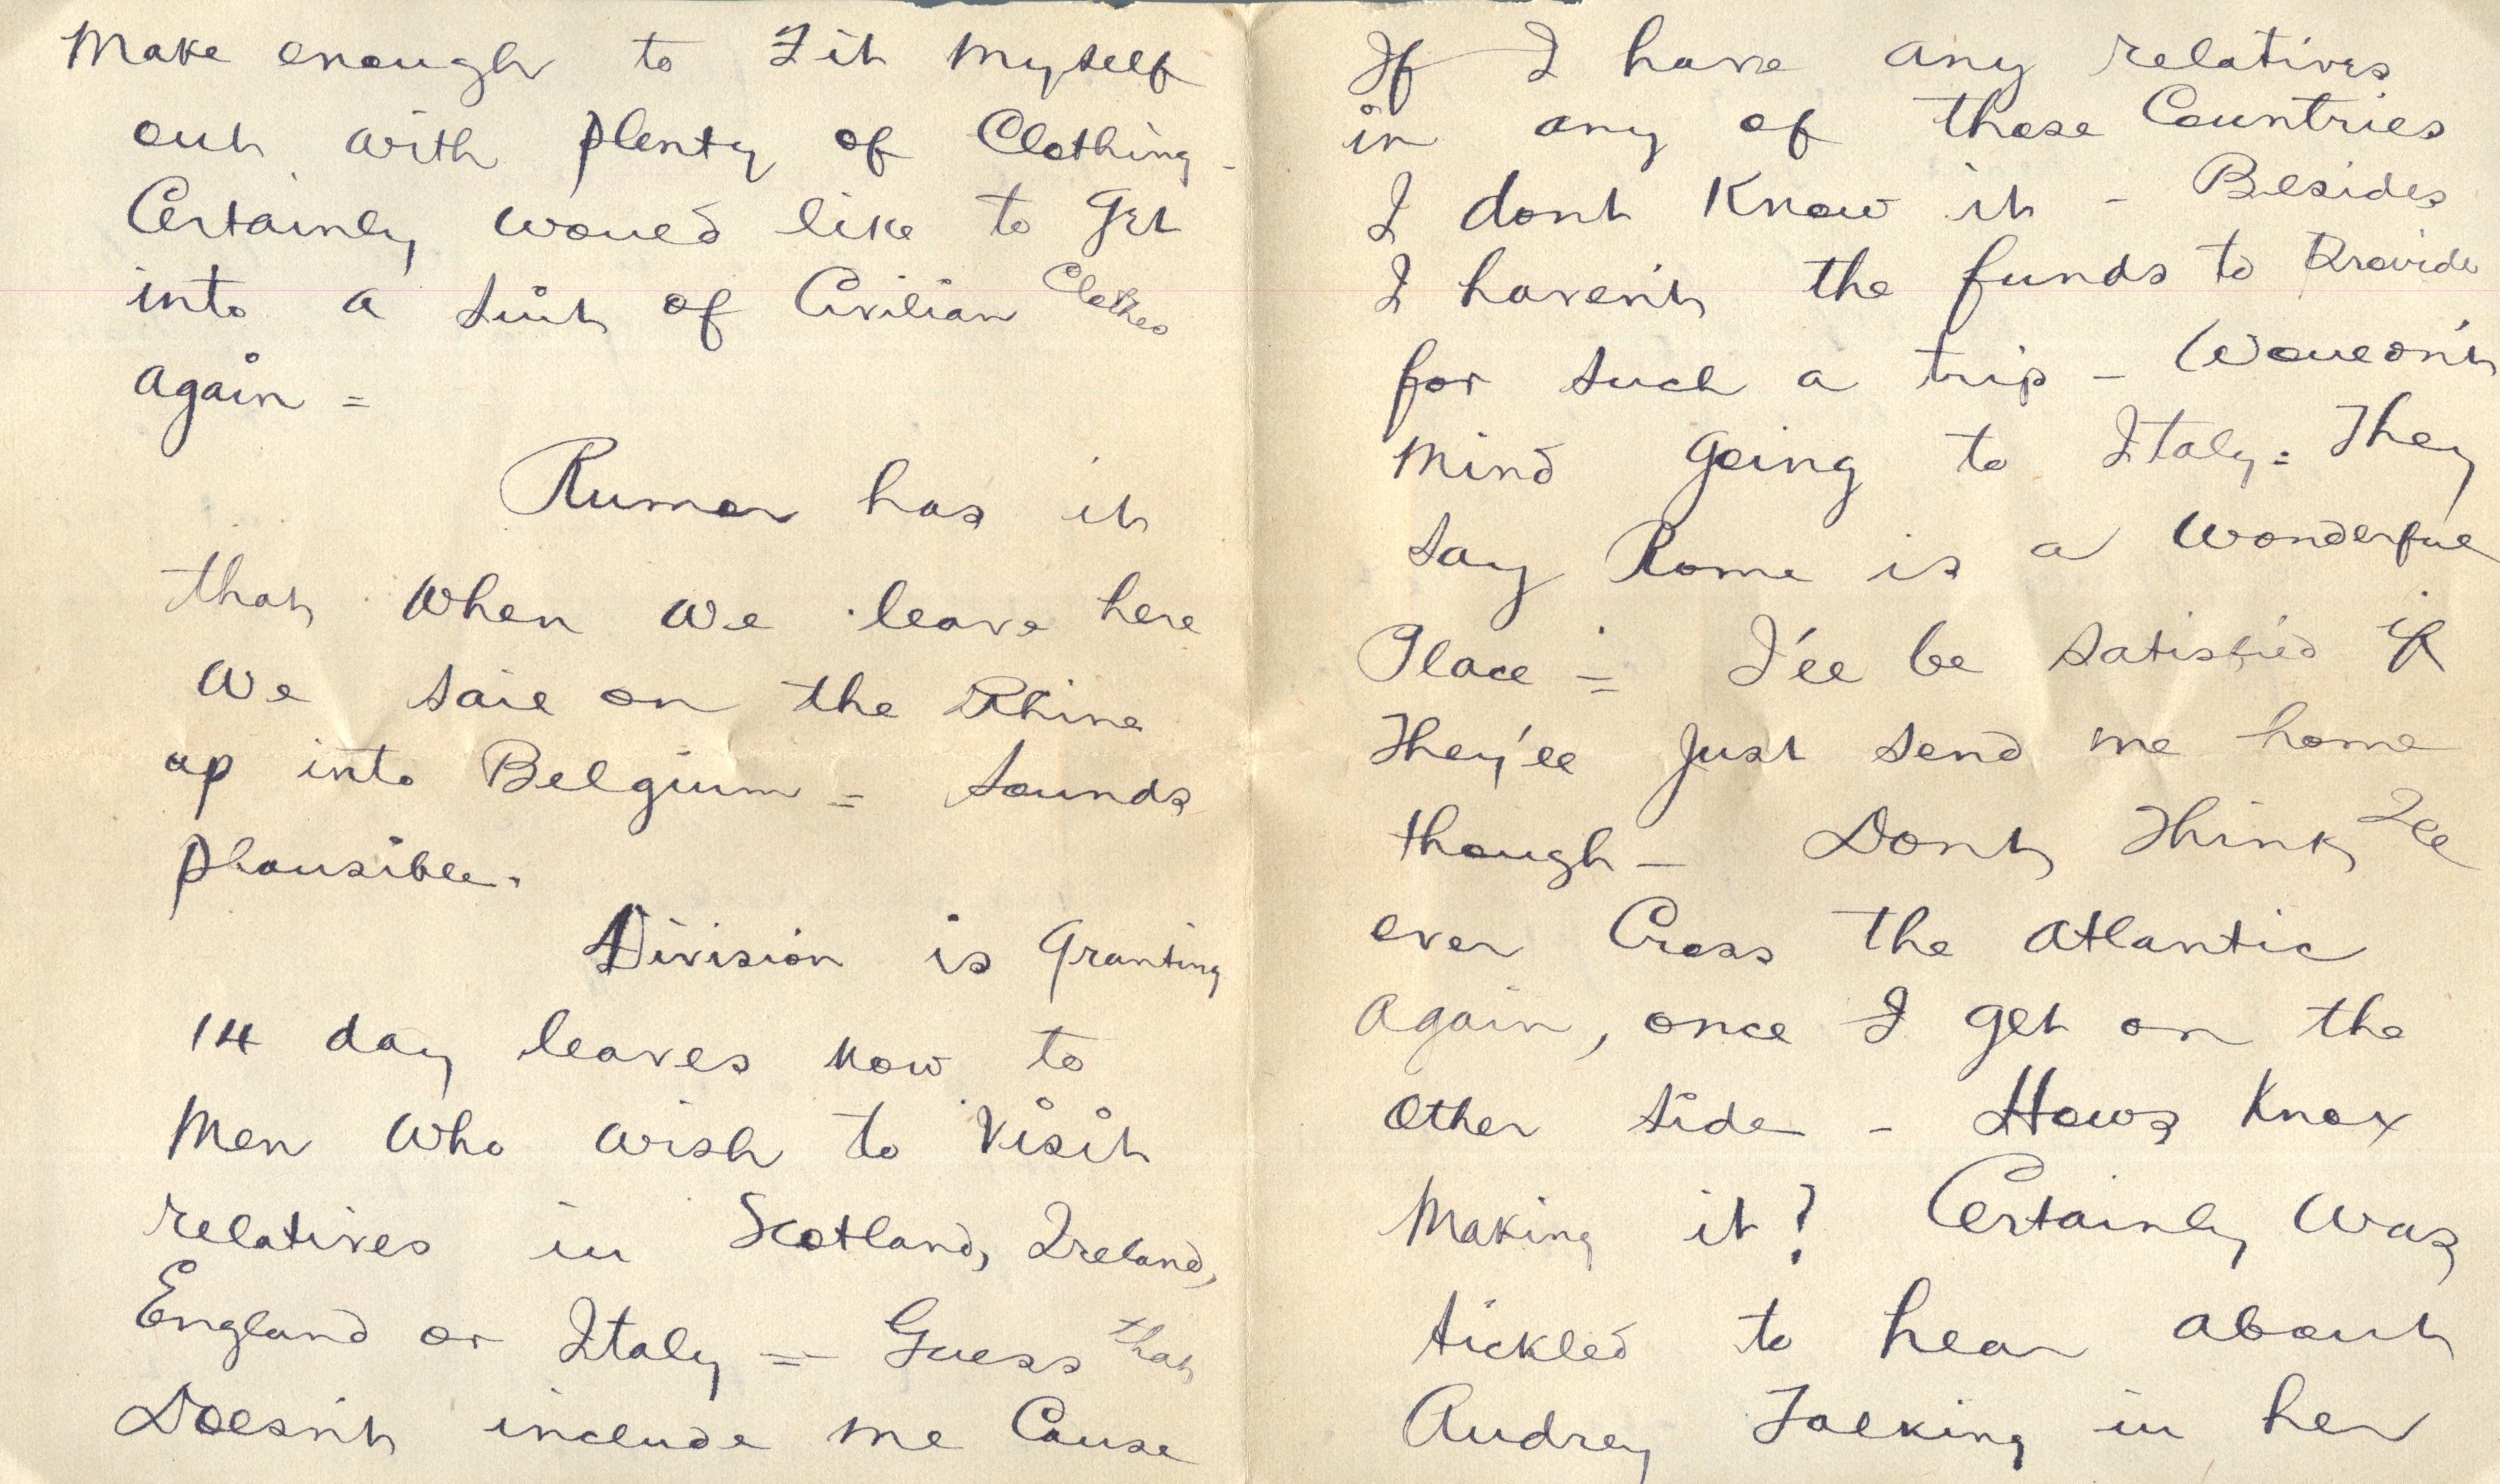 Make enough to Fit Myself
out with plenty of Clothing -
Certainly would like to Get
into a suit of Civilian Clothes
again =
Rumor has it
that when we leave here
We sail on the Rhine
up into Belgium = Sounds
plausible.
Division is Granting
14 day leaves now to
Men who wish to visit
relatives in Scotland, Ireland,
England or Italy = Guess that
Doesn't include me Cause
If I have any relatives
in any of those Countries
I dont Know it - Besides
I haven't the funds to Provide
for such a trip - Wouldn't
Mind Going to Italy = They
say Rome is a Wonderful
Place = I'll be satisfied if
They'll Just send me home
though - Dont Think I'll
ever Cross the Atlantic
Again, once I get on the
Other side - Hows Knox
Making it? Certainly Was
tickled to hear about
Audrey Talking in her